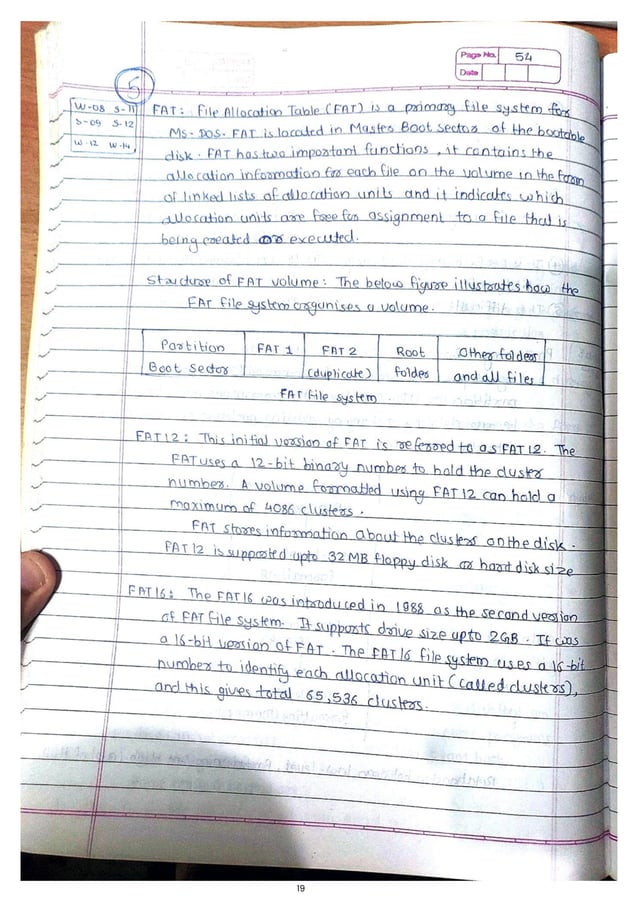 Page No. 54
Date
5
W-08 S-11
S-09 S-12
W-12 W-14
FAT: File Allocation Table (FAT) is a primary file system for
MS-DOS. FAT is located in Master Boot sector of the bootable
disk. FAT has two important functions, it contains the
allocation information for each file on the volume in the form
of linked lists of allocation units and it indicates which
allocation units are free for assignment to a file that is
being created or executed.
Structure of FAT volume: The below figure illustrates how the
FAT file system organises a volume.
Partition Boot Sector
FAT 1
FAT 2 (duplicate)
Root folder
Other folders and all files
FAT file system
FAT12: This initial version of FAT is referred to as FAT 12. The
FAT uses a 12-bit binary number to hold the cluster
number. A volume formatted using FAT 12 can hold a
maximum of 4086 clusters.
FAT stores information about the clusters on the disk.
FAT 12 is supported upto 32 MB floppy disk or hard disk size
FAT16: The FAT16 was introduced in 1988 as the second version
of FAT file system. It supports drive size upto 2GB. It was
a 16-bit version of FAT. The FAT 16 file system uses a 16-bit
number to identify each allocation unit (called clusters),
and this gives total 65,536 clusters.
19